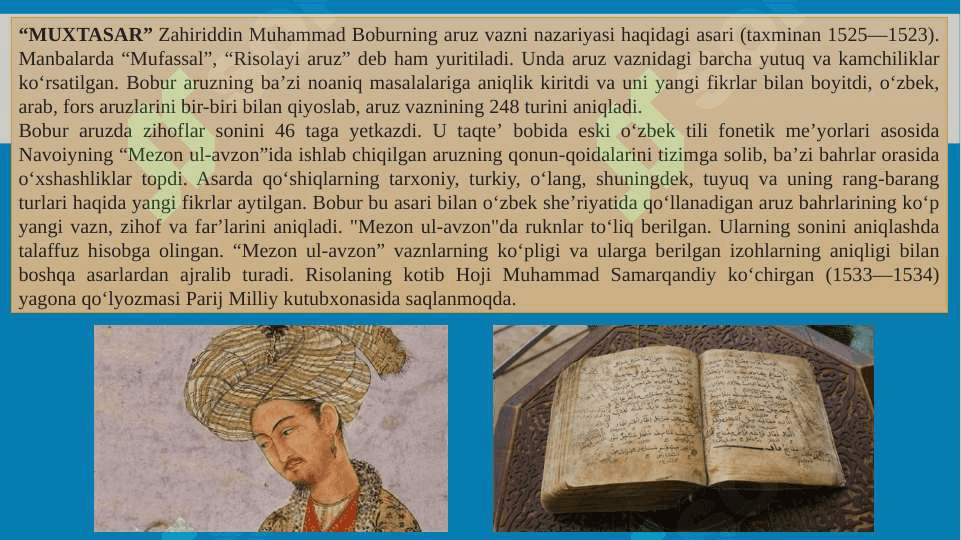 “MUXTASAR” Zahiriddin Muhammad Boburning aruz vazni nazariyasi haqidagi asari (taxminan 1525—1523).
Manbalarda “Mufassal”, “Risolayi aruz” deb ham yuritiladi. Unda aruz vaznidagi barcha yutuq va kamchiliklar
ko‘rsatilgan. Bobur aruzning ba’zi noaniq masalalariga aniqlik kiritdi va uni yangi fikrlar bilan boyitdi, o‘zbek,
arab, fors aruzlarini bir-biri bilan qiyoslab, aruz vaznining 248 turini aniqladi.
Bobur aruzda zihoflar sonini 46 taga yetkazdi. U taqte’ bobida eski o‘zbek tili fonetik me’yorlari asosida
Navoiyning “Mezon ul-avzon”ida ishlab chiqilgan aruzning qonun-qoidalarini tizimga solib, ba’zi bahrlar orasida
o‘xshashliklar topdi. Asarda qo‘shiqlarning tarxoniy, turkiy, o‘lang, shuningdek, tuyuq va uning rang-barang
turlari haqida yangi fikrlar aytilgan. Bobur bu asari bilan o‘zbek she’riyatida qo‘llanadigan aruz bahrlarining ko‘p
yangi vazn, zihof va far’larini aniqladi. "Mezon ul-avzon"da ruknlar to‘liq berilgan. Ularning sonini aniqlashda
talaffuz hisobga olingan. “Mezon ul-avzon” vaznlarning ko‘pligi va ularga berilgan izohlarning aniqligi bilan
boshqa asarlardan ajralib turadi. Risolaning kotib Hoji Muhammad Samarqandiy ko‘chirgan (1533—1534)
yagona qo‘lyozmasi Parij Milliy kutubxonasida saqlanmoqda.